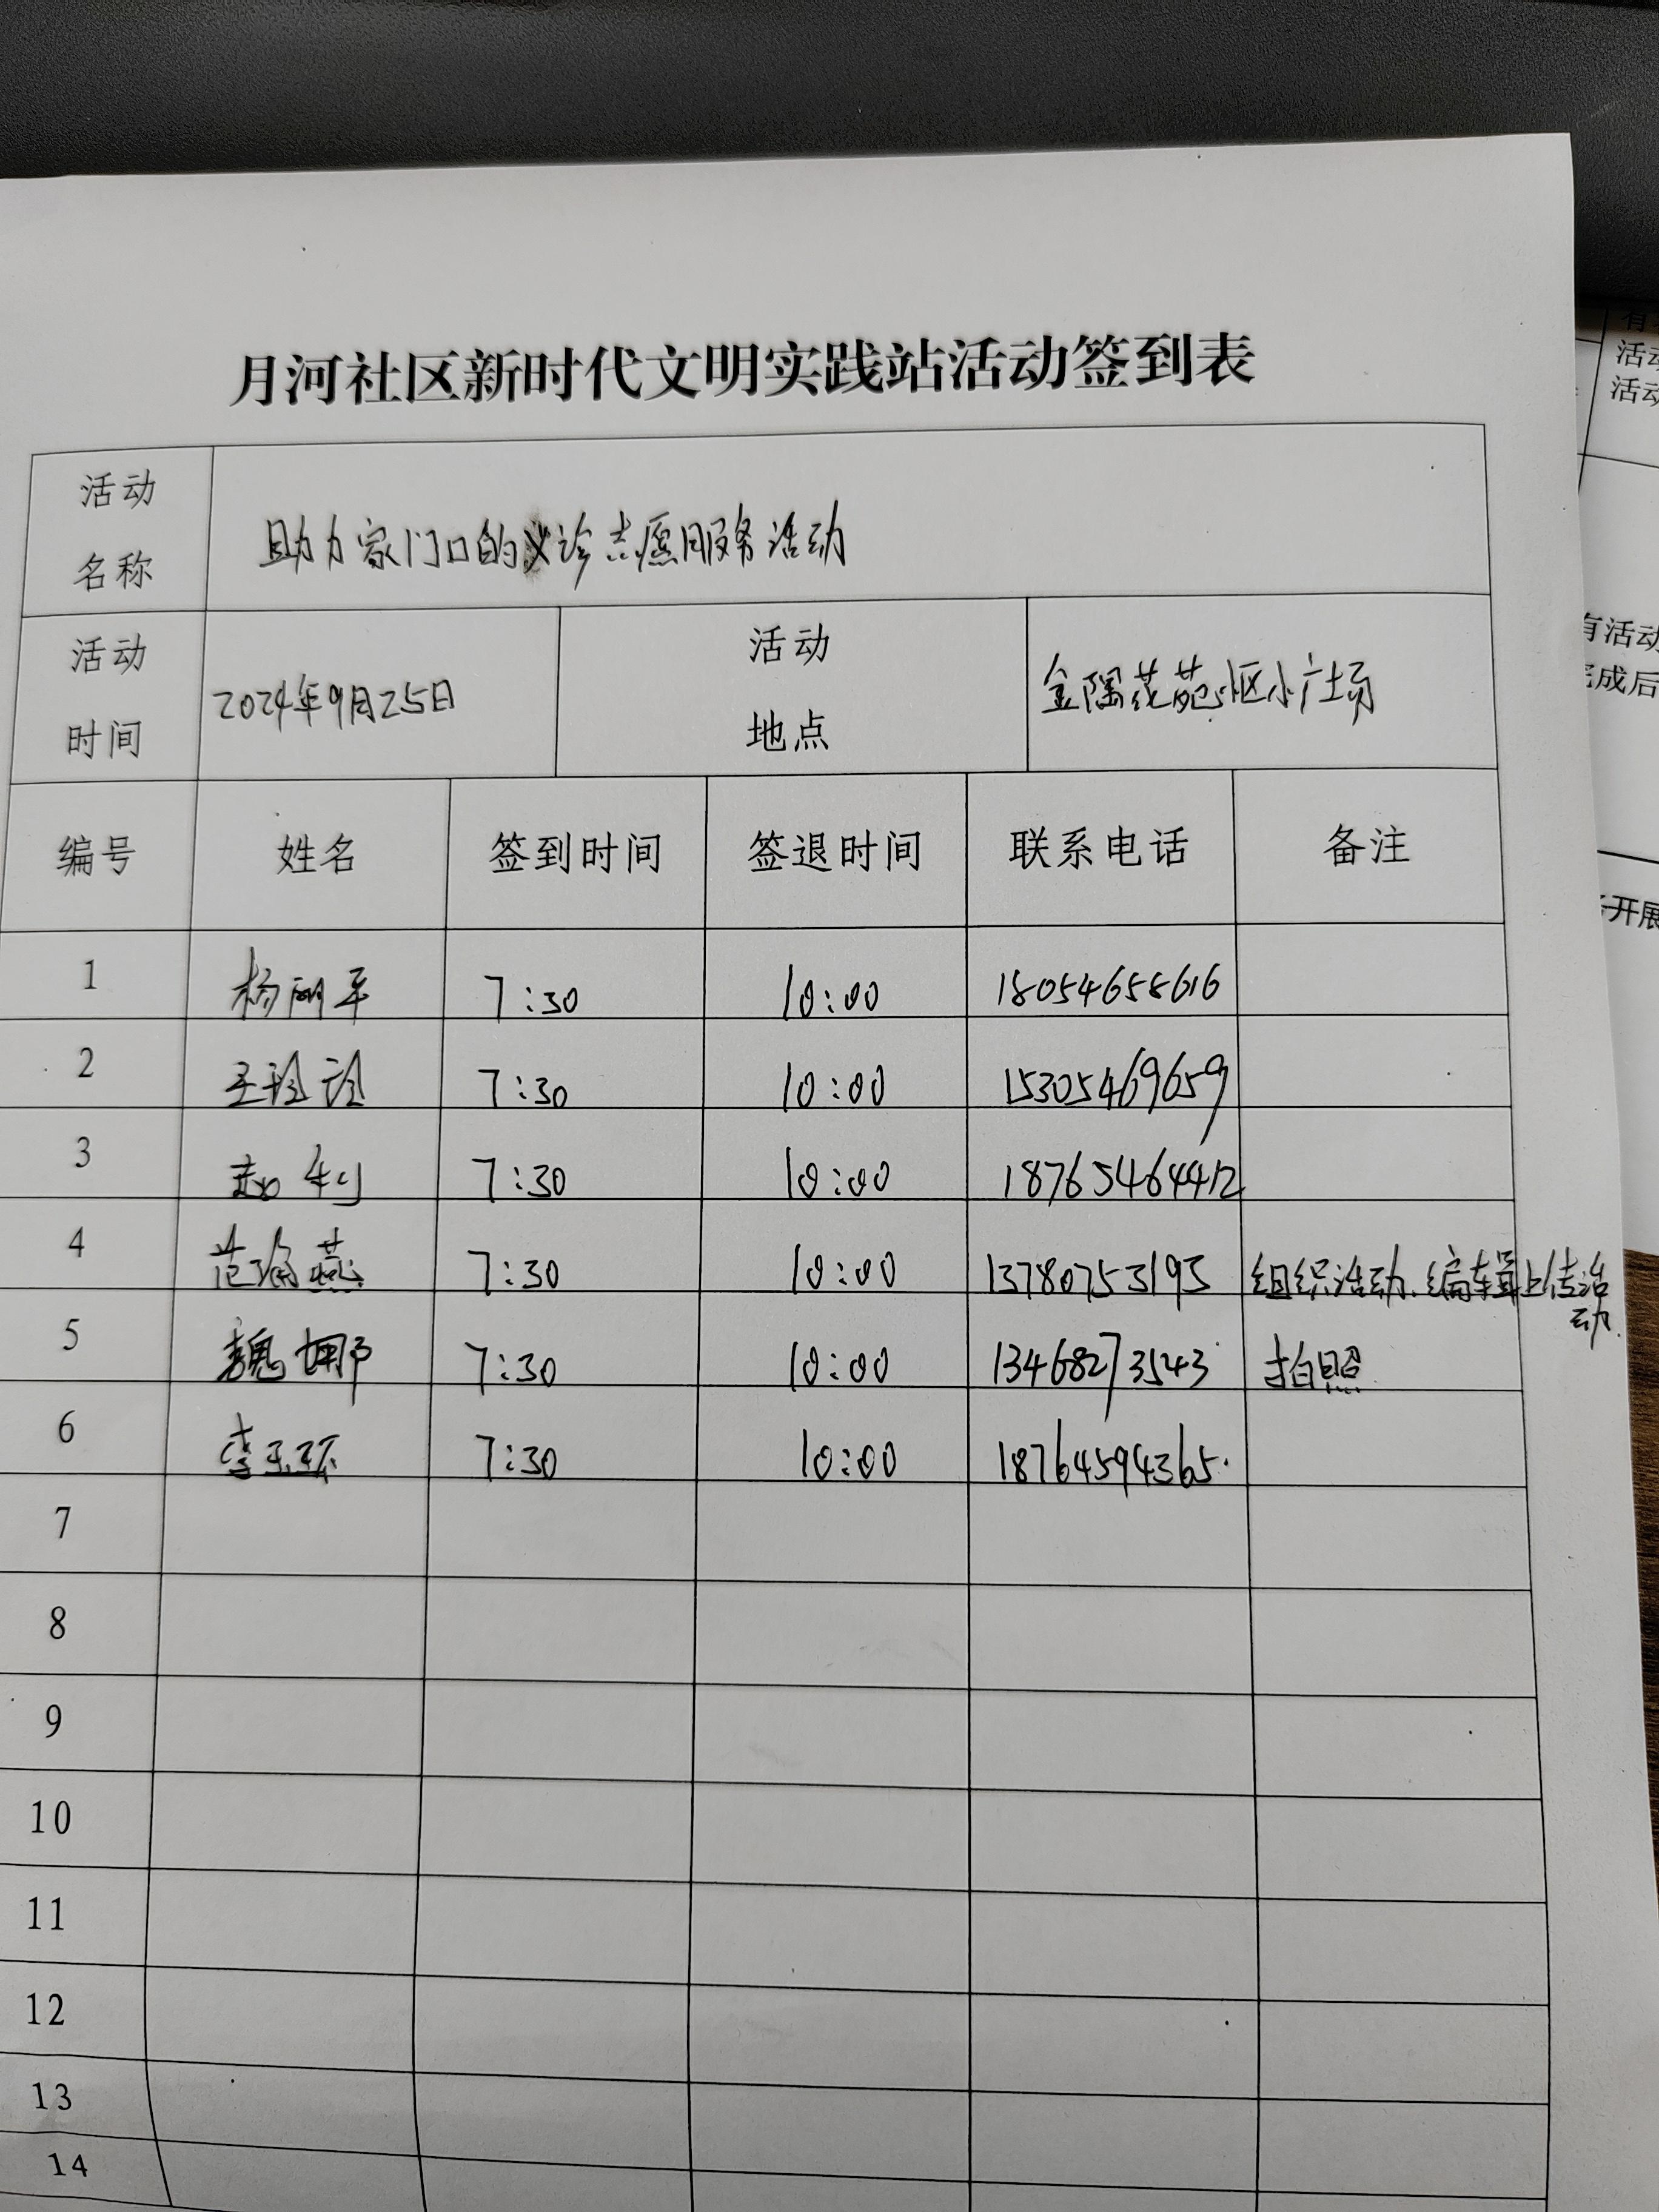 月河社区新时代文明实践站活动签到表
活动名称 助力家门口的义诊志愿服务活动
活动时间 2024年9月25日 活动地点 金隅花苑小区小广场
编号 姓名 签到时间 签退时间 联系电话 备注
1 杨丽平 7:30 10:00 18054658616
2 王玲玲 7:30 10:00 15305469659
3 赵利 7:30 10:00 18765464412
4 范海燕 7:30 10:00 13780753193 组织活动、编辑上传活动.
5 魏娜 7:30 10:00 13468273543 拍照
6 李玉环 7:30 10:00 18764594365.
7
8
9
10
11
12
13
14
活动
活动
有活动
完成后
开展